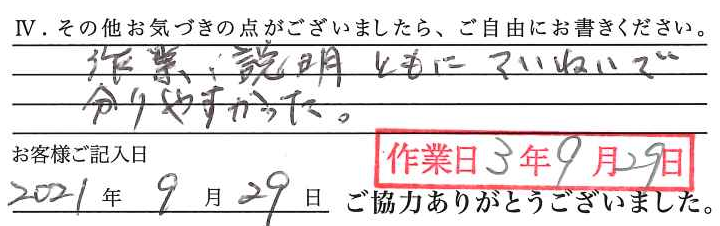 Ⅳ．その他お気づきの点がございましたら、ご自由にお書きください。
作業、説明ともにていねいで
分りやすかった。
お客様ご記入日
作業日3年9月29日
2021年9月29日
ご協力ありがとうございました。